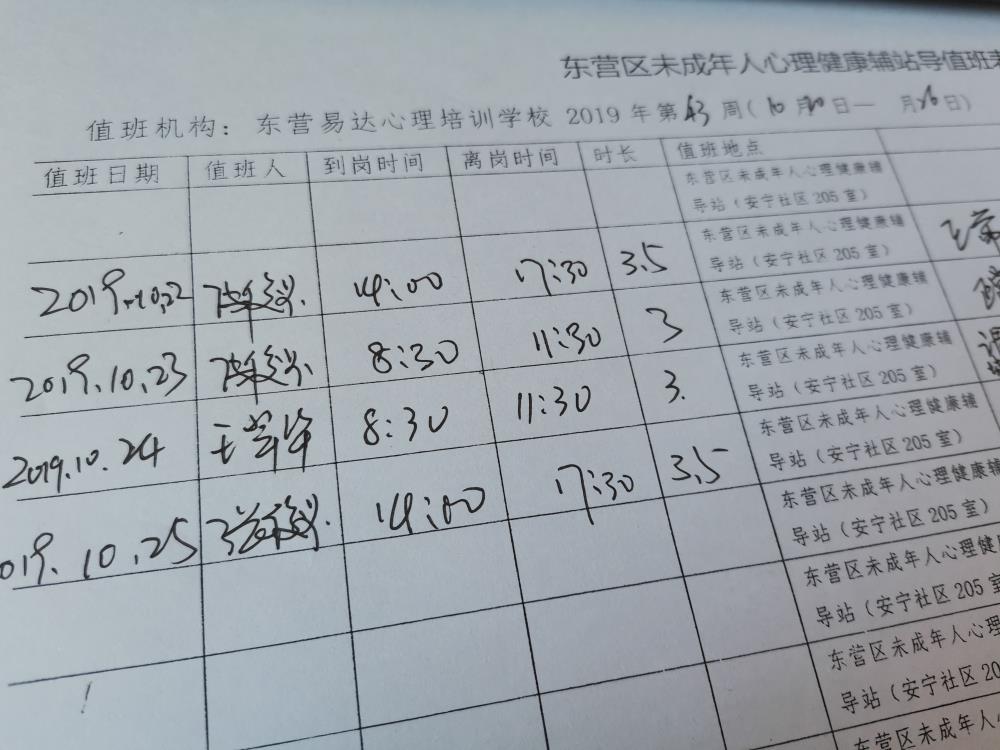 东营区未成年人心理健康辅站导值班
值班机构：东营易达心理培训学校 2019 年第43周（10月20日— 月26日）
值班日期 值班人 到岗时间 离岗时间 时长 值班地点
东营区未成年人心理健康辅
导站（安宁社区205室）
2019.10.22 14:00 17:30 3.5 东营区未成年人心理健康辅
导站（安宁社区205室）
2019.10.23 8:30 11:30 3 东营区未成年人心理健康辅
导站（安宁社区205室）
2019.10.24 8:30 11:30 3. 东营区未成年人心理健康辅
导站（安宁社区205室）
2019.10.25 14:00 17:30 3.5 东营区未成年人心理健康辅
导站（安宁社区205室）
东营区未成年人心理健康辅
导站（安宁社区205室）
东营区未成年人心理健康
导站（安宁社区205室
东营区未成年人心理
导站（安宁社区20
东营区未成年人